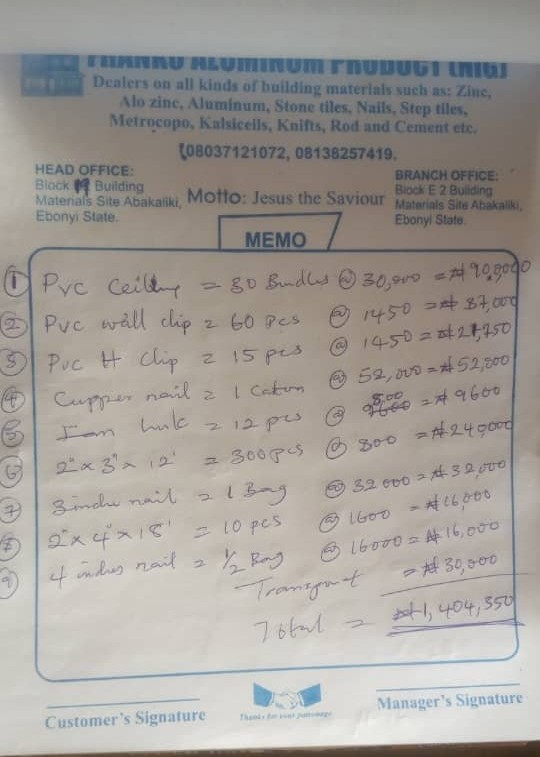 THANKU ALUMINUM PRODUCT (NIG)
Dealers on all kinds of building materials such as: Zinc,
Alo zinc, Aluminum, Stone tiles, Nails, Step tiles,
Metrocopo, Kalsiceils, Knifts, Rod and Cement etc.
08037121072, 08138257419.
HEAD OFFICE:
Block 19 Building
Materials Site Abakaliki,
Ebonyi State.
Motto: Jesus the Saviour
BRANCH OFFICE:
Block E 2 Building
Materials Site Abakaliki,
Ebonyi State.
MEMO
1 Pvc Ceiling = 30 Bundles @ 30,000 = ₦ 900,000
2 Pvc wall clip = 60 pcs @ 1450 = ₦ 87,000
3 Pvc H Clip = 15 pcs @ 1450 = ₦ 21,750
4 Cupper nail = 1 Caton @ 52,000 = ₦ 52,000
5 huk = 12 pcs @ 800 = ₦ 9600
6 2" x 3" x 12' = 300 pcs @ 800 = ₦ 240,000
7 3 inche nail = 1 Bag @ 32000 = ₦ 32,000
8 2" x 4" x 18' = 10 pcs @ 1600 = ₦ 16,000
9 4 inches nail = ½ Bag @ 16000 = ₦ 16,000
Transport = ₦ 30,000
Total = ₦ 1,404,350
Customer's Signature
Thanks for your patronage
Manager's Signature